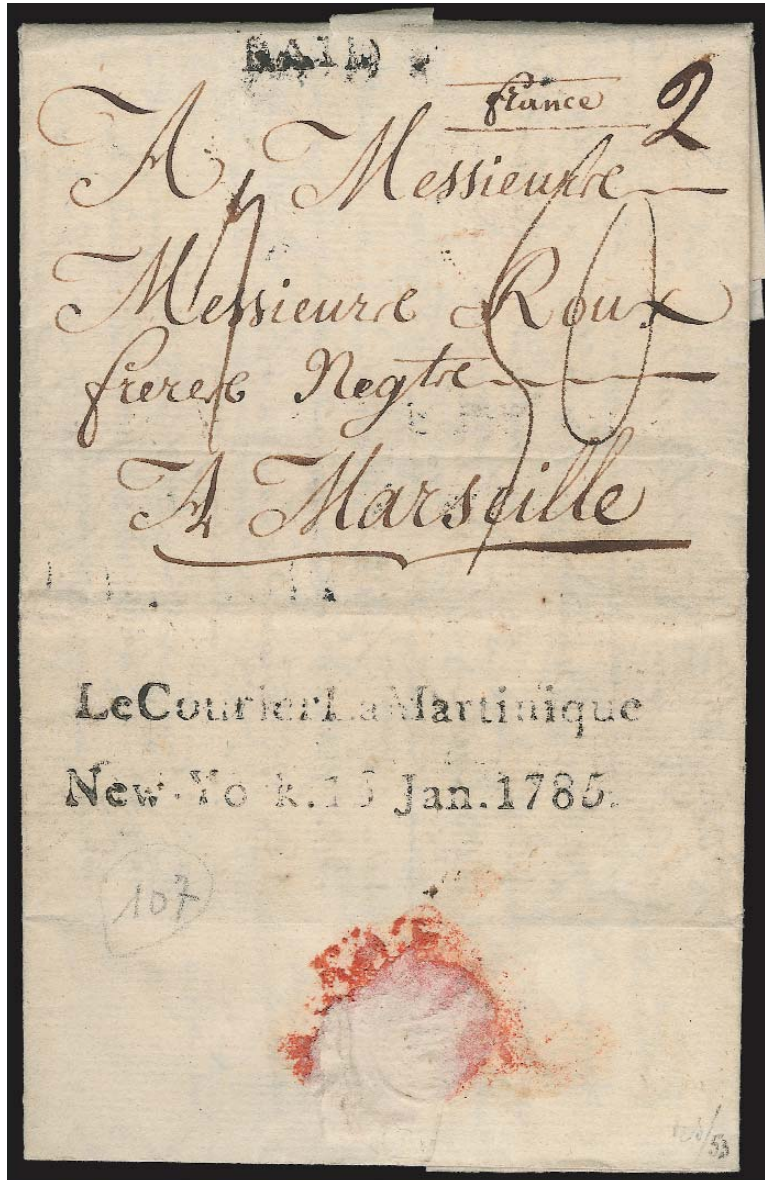 PAID
france 2
A Messieurs
Messieurs Roux
freres Negts
A Marseille
Le Courier La Martinique
New-York. 15 Jan. 1785.
107
53